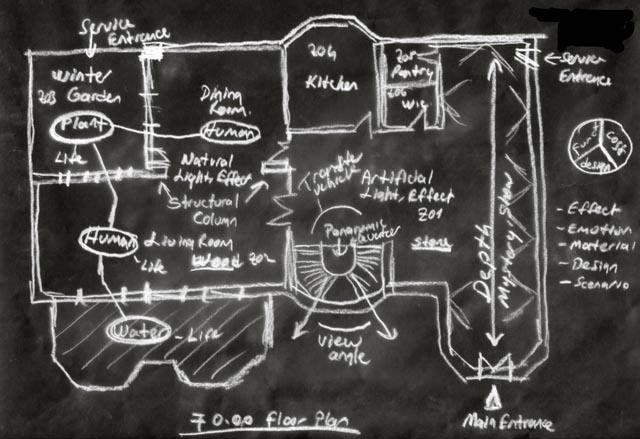 Service
Entrance
Winter
Garden
Z03
Plant
Life
Dining
Room.
Human
Natural
Light, Effect
Structural
Column
Human
Living Room
Life
Wood Z02
Water
Life
Z04
Kitchen
Z05
Pantry
Z06
W.c
Transfer
vehicle
Artificial
Light, Effect
Z01
Panoramic
stone
View
angle
Depth
Mystery Show
Service
Entrance
Func.
Cost
design
- Effect
- Emotion
- Material
- Design
- Scenario
Main Entrance
70.00 floor Plan